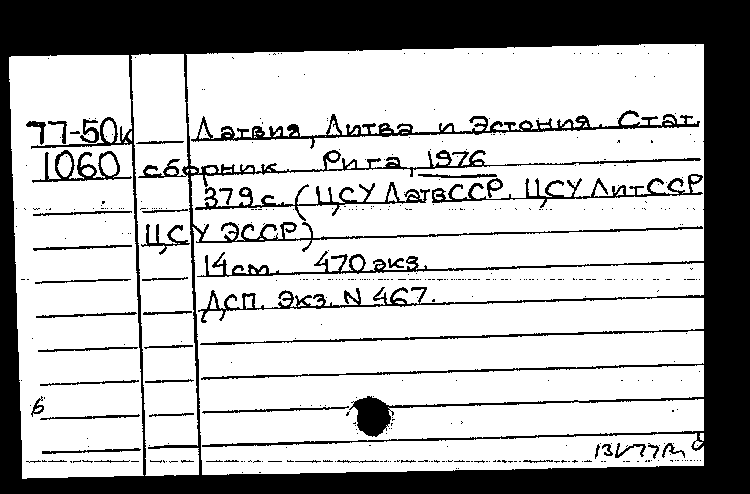 77-50к Латвия, Литва и Эстония. Стат.
1060 сборник. Рига, 1976
379 с. (ЦСУ ЛатвССР. ЦСУ ЛитССР
ЦСУ ЭССР)
14 см. 470 экз.
ДСП. Экз. N 467.
б